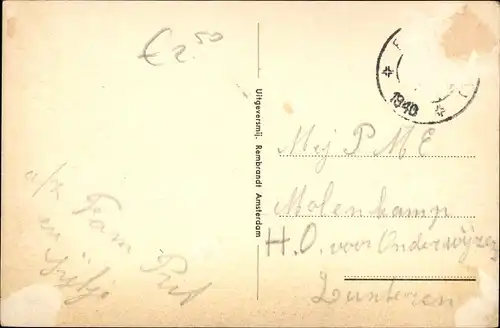 € 2.50
1940
Uitgeversmij. Rembrandt Amsterdam
Mej P M E
Molenkamp
H.O. voor Onderwijzen
Lunteren
a/z Fam Put
en